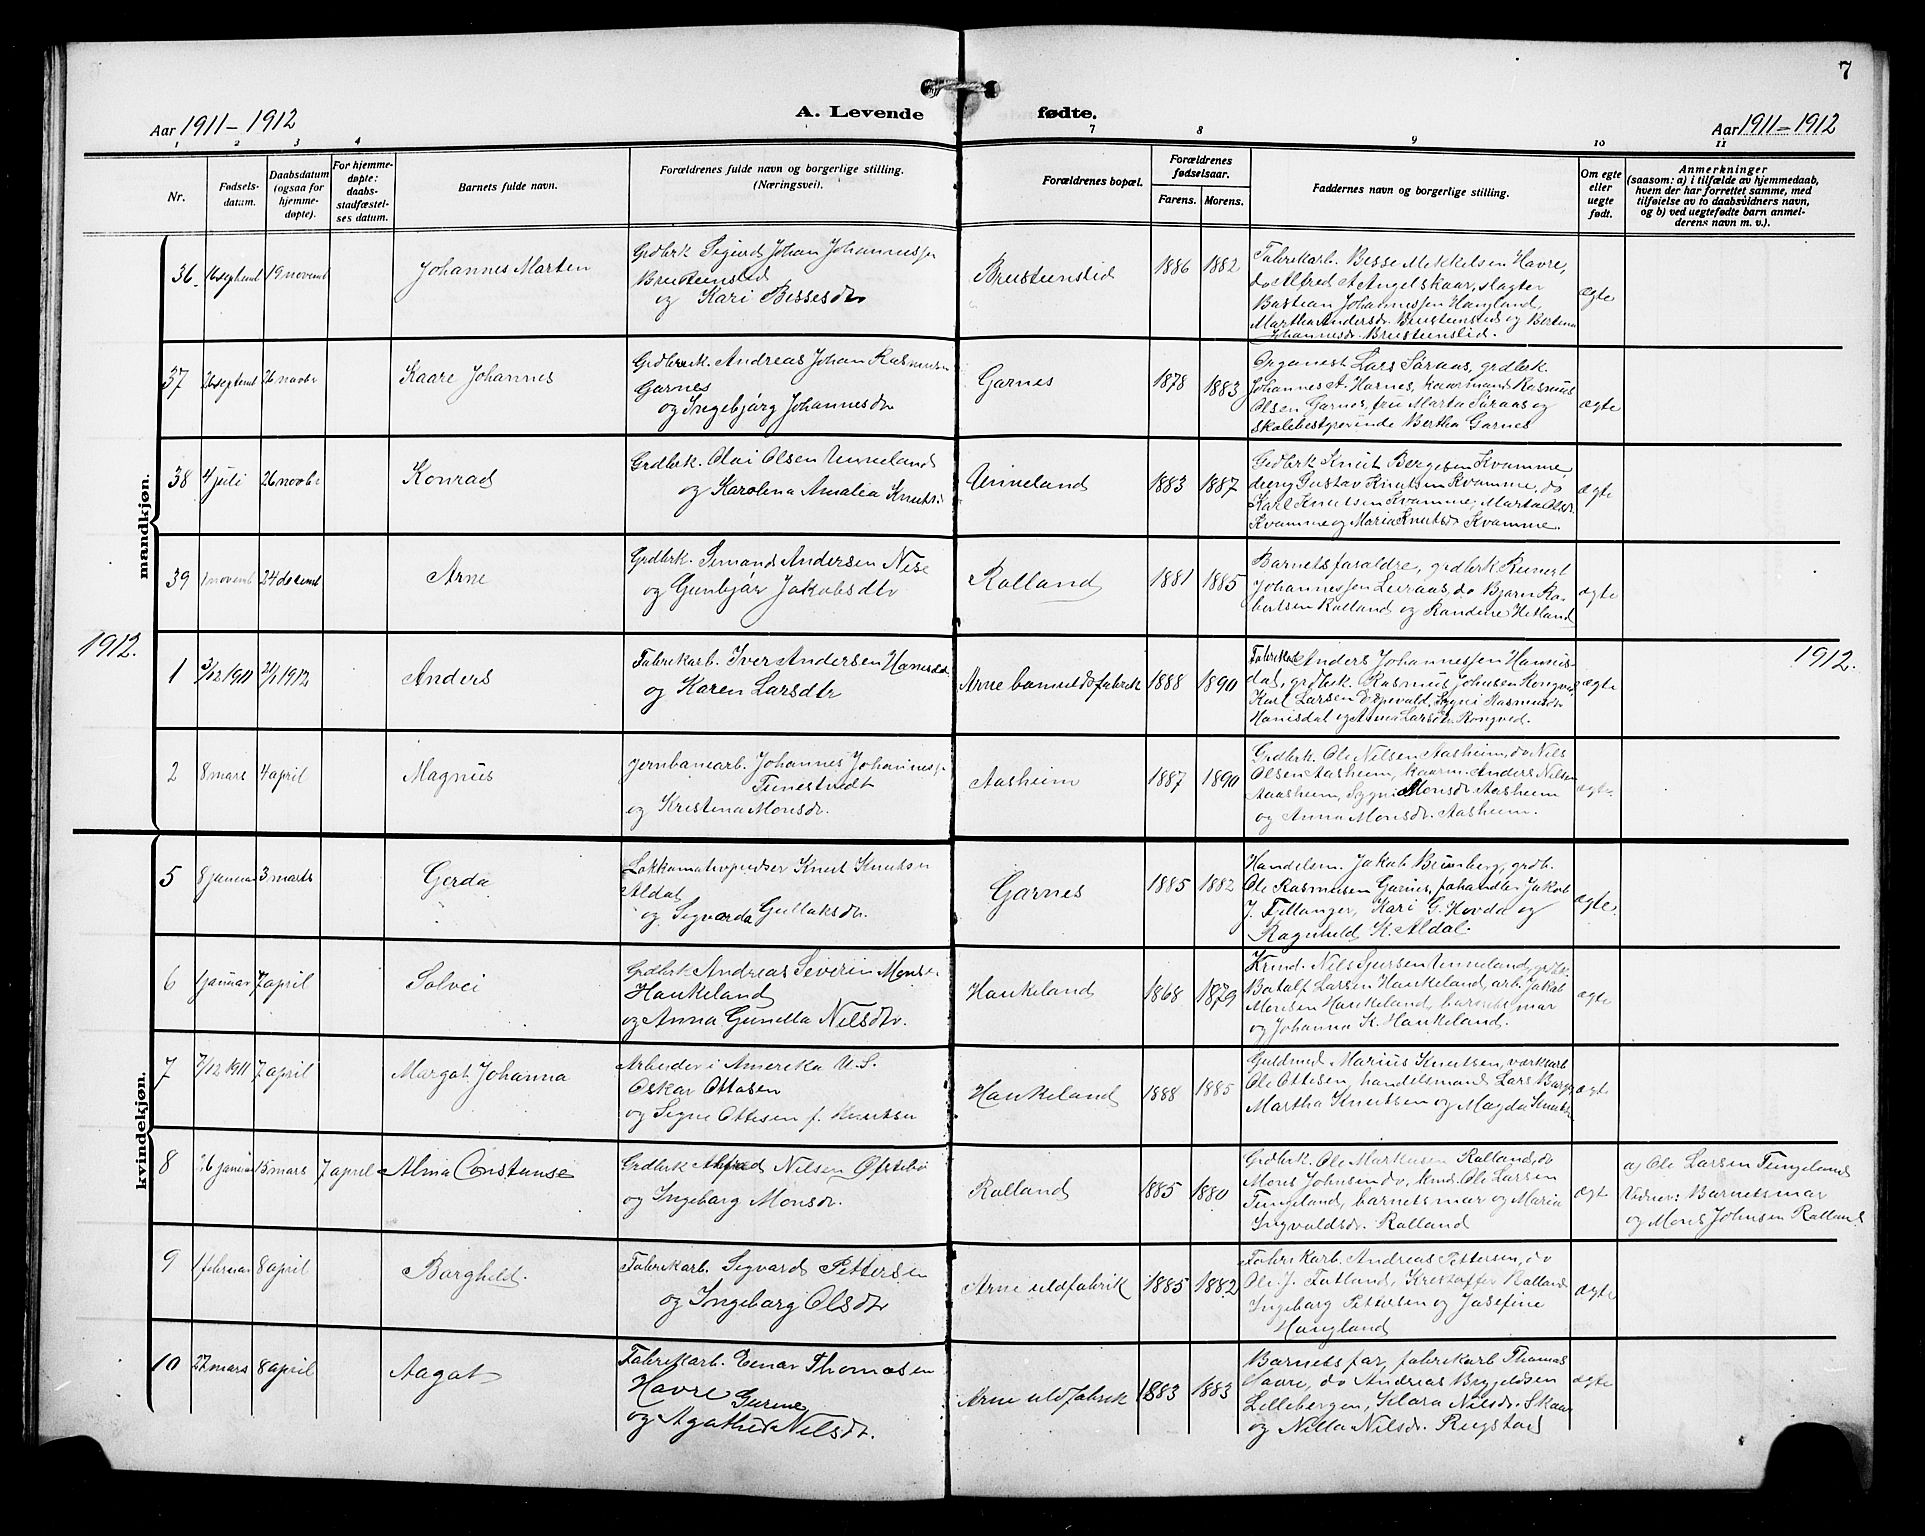 7
A. Levende fødte.
Aar 1911 - 1912
Aar 1911 - 1912
1 2 3 4 7 8 9 10 11
Nr.
Fødsels-
datum.
Daabsdatum
(ogsaa for
hjemme-
døpte).
For hjemme-
døpte:
daabs-
stadfæstel-
ses datum.
Barnets fulde navn.
Forældrenes fulde navn og borgerlige stilling.
(Næringsvei).
Forældrenes bopæl.
Forældrenes
fødselsaar.
Farens. Morens.
Faddernes navn og borgerlige stilling.
Om egte
eller
uegte
født.
Anmerkninger
(saasom: a) i tilfælde av hjemmedaab,
hvem der har forrettet samme, med
tilføielse av to daabsvidners navn,
og b) ved uegtefødte barn anmel-
derens navn m. v.).
mandkjøn.
36 septemb 19 novemb
Johannes Marten
Grdbrk Sigurd Johan Johannessen
Brusteinslid
og Kari Bessesdtr
Brusteinslid
1886 1882
Fabrikarb. Besse Mekkelsen Havre,
do Alfred A Angelskaar,
Bastian Johannessen Haugland,
Martha Andersdr. Brusteinslid og Bertina
Johannesdr. Brusteinslid.
ægte
37 26 septemb 26 novbr
Kaare Johannes
Grdbruk. Andreas Johan Rasmussen
Garnes
og Ingebjørg Johannesdtr
Garnes
1878 1883
Organist Lars Søraas, grdbrk.
Johannes A. Garnes, kaarmand Rasmus
Olsen Garnes, fru Marta Søraas og
skolebestyrerinde Bertha Garnes
ægte
38 4 juli 26 novbr
Konrad
Grdbrk. Olai Olsen Unneland
og Karolina Amalia Knutsd
Unneland
1883 1887
Grdbrk Knut Bergesen Kvamme,
dreng Gustav Knutsen Kvamme, do
Karl Knutsen Kvamme, Marta Olsdr.
Kvamme og Maria Knutsdr Kvamme.
ægte
39 1 novemb 24 decemb
Arne
Grdbrk. Simond Andersen Nese
og Gunbjør Jakobsdtr
Rolland
1881 1885
Barnets foraldre, grdbrk Reinert
Johannessen Leiraas, do Bjørn Ro-
bertsen Rolland og Randine Hetland
ægte
1912.
1912.
1 3/12 1911 21/1 1912
Anders
Fabrikarb. Iver Andersen Hanisdal
og Karen Larsdtr
Arne bomuldsfabrik
1888 1890
Fabrikarb Anders Johannessen Hanis-
dal, grdbrk. Rasmus Johnsen Rongved,
Karl Larsen Espevold, Sygni Rasmusdr.
Hanisdal og Anna Larsdr. Rongved.
ægte
2 8 mars 4 april
Magnus
jernbanearb. Johannes Johannessen
Tunestvedt
og Kristina Monsdr.
Aasheim
1887 1890
Grdbrk. Ole Nilsen Aasheim, do Nils
Olsen Aasheim, kaarm. Anders Nilsen
Aasheim, Sygni Monsdr. Aasheim
og Anna Monsdr. Aasheim.
ægte
kvindekjøn.
5 8 januar 3 marts
Gerda
Lokkomotivpudser Knut Knutsen
Aldal
og Sigvarda Gullaksdr.
Garnes
1885 1882
Handelsm. Jakob Brunborg, grdb.
Ole Rasmussen Garnes, Jakob
J. Fjellanger, Kari G. Hovda og
Ragnhild K. Aldal.
ægte.
6 1 januar 7 april
Solvei
Grdbrk Andreas Severin Monsen
Haukeland
og Anna Gunilla Nilsdtr.
Haukeland
1868 1879
Kmd. Nils Sjursen Unneland, grdbr.
Botolf Larsen Haukeland, arb. Jakob
Monsen Haukeland, barnets mor
og Johanna K. Haukeland.
ægte
7 7/12 1911 7 april
Margot Johanna
Arbeider i Amerika U. S.
Oskar Ottesen
og Signe Ottesen f. Knutsen
Haukeland
1888 1885
Guldsmed Marius Knutsen, værkarb.
Ole Ottesen, handelsmand Lars Borge,
Martha Knutsen og Magda Knutsen
ægte
8 26 januar 15 mars 7 april
Alma Constanse
Grdbrk Alfred Nilsen Øfstebø
og Ingeborg Monsdr.
Rolland
1885 1880
Grdbrk. Ole Markusen Rolland, do
Mons Johnsen do, kmd. Ole Larsen
Tengeland, barnets mor og Maria
Ingvaldsdr. Rolland
ægte
a) Ole Larsen Tengeland
Vidner: Barnets mor
og Mons Johnsen Rolland
9 1 februar 8 april
Borghild.
Fabrikarb. Sigvard Pettersen
og Ingeborg Olsdtr
Arne uldfabrik
1885 1882
Fabrikarb. Andreas Pettersen, do
Ole J. Fotland, Kristoffer Rolland,
Ingeborg Pettersen og Josefine
Haugland
ægte
10 27 mars 8 april
Aagot
Fabrikarb. Einar Thomasen
Havre
Gurine
og Agathe Nilsdr.
Arne uldfabrik
1883 1883
Barnets far, fabrikarb Thomas
Havre, do Andreas
Lillebergen, Klara Nilsdr. Skaar
og Nilla Nilsdr. Rugstad
ægte